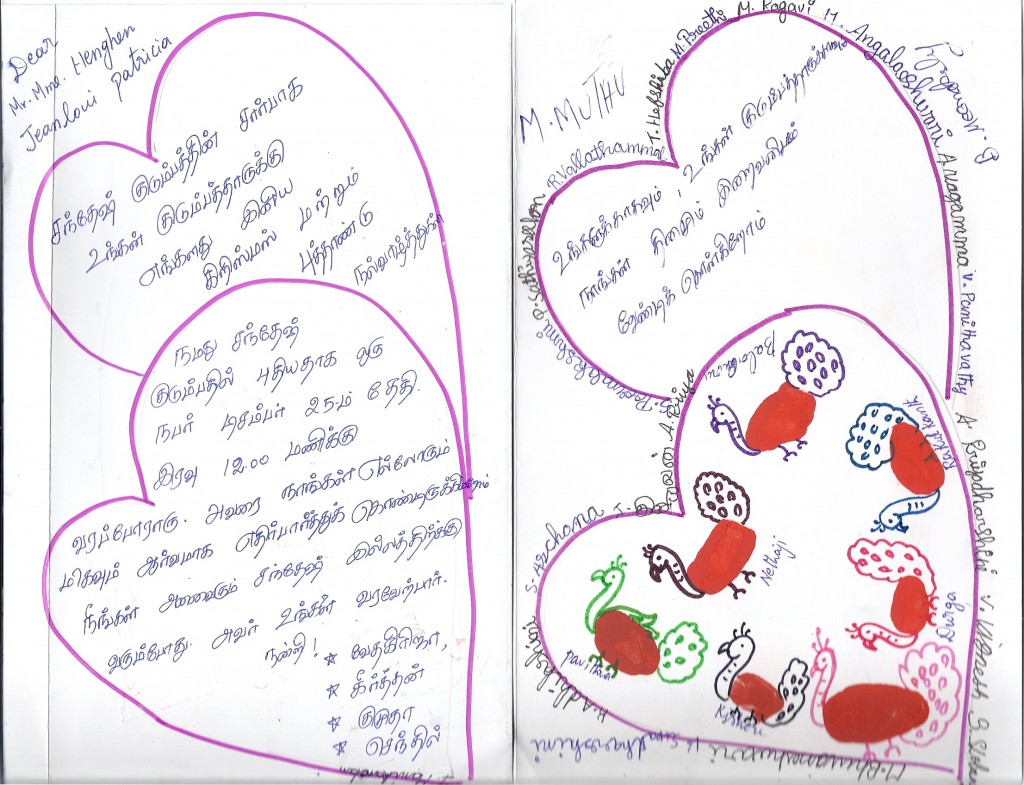 Dear
Mr. Mme. Henghen
Jeanloui patricia
சந்தேஷ் குடும்பத்தின் சார்பாக
உங்கள் குடும்பத்தாருக்கு
எங்களது இனிய
கிறிஸ்மஸ் மற்றும்
புத்தாண்டு
நல்வாழ்த்துகள்
நமது சந்தேஷ்
குடும்பதில் புதியதாக ஒரு
நபர் டிசம்பர் 25-ம் தேதி.
இரவு 12.00 மணிக்கு
வரப்போராரு. அவரை நாங்கள் எல்லோரும்
மிகவும் ஆர்வமாக எதிர்பார்த்துக் கொண்டிருக்கின்றோம்
நீங்கள் அனைவரும் சந்தேஷ் இல்லத்திற்க்கு
வரும்போது. அவர் உங்கள் வரவேற்பார்.
நன்றி!
☆ வேதகிரிஜா,
☆ கீர்த்தன்
☆ குமுதா
☆ செந்தில்
M. MUTHU
உங்களுக்காகவும், உங்கள் குடும்பத்தாருக்காகவும்
நாங்கள் தினமும் இறைவனிடம்
வேண்டிக் கொள்கிறோம்
R. Vallathammal
T. Hefshiba
M. Preethi
M. Ragavi
M. Angalaeshwari
A. Nagamma
V. Pamithavathy
A. Priyadharshini
V. Vignesh
M. Bhuvaneshwari
S. Archana
A. Priya
Nethaji
Durga
Pavithra